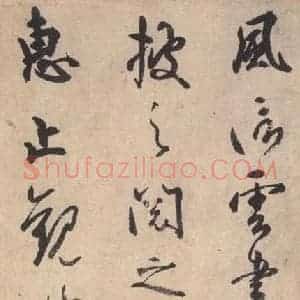 風信雲書
披之閲之
惠止觀
Shufaziliao.COM